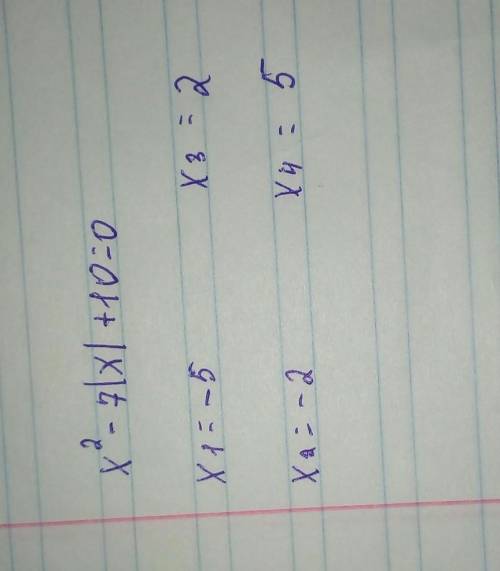 x² - 7|x| + 10 = 0
x₁ = -5 x₃ = 2
x₂ = -2 x₄ = 5